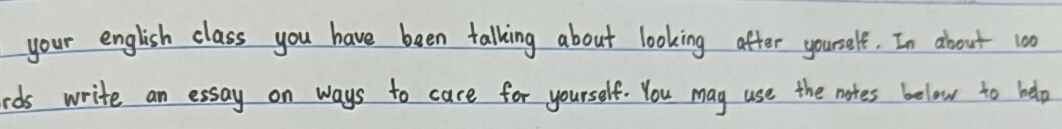 your english class you have been talking about looking after yourself. In about 100
rds write an essay on ways to care for yourself. You may use the notes below to help